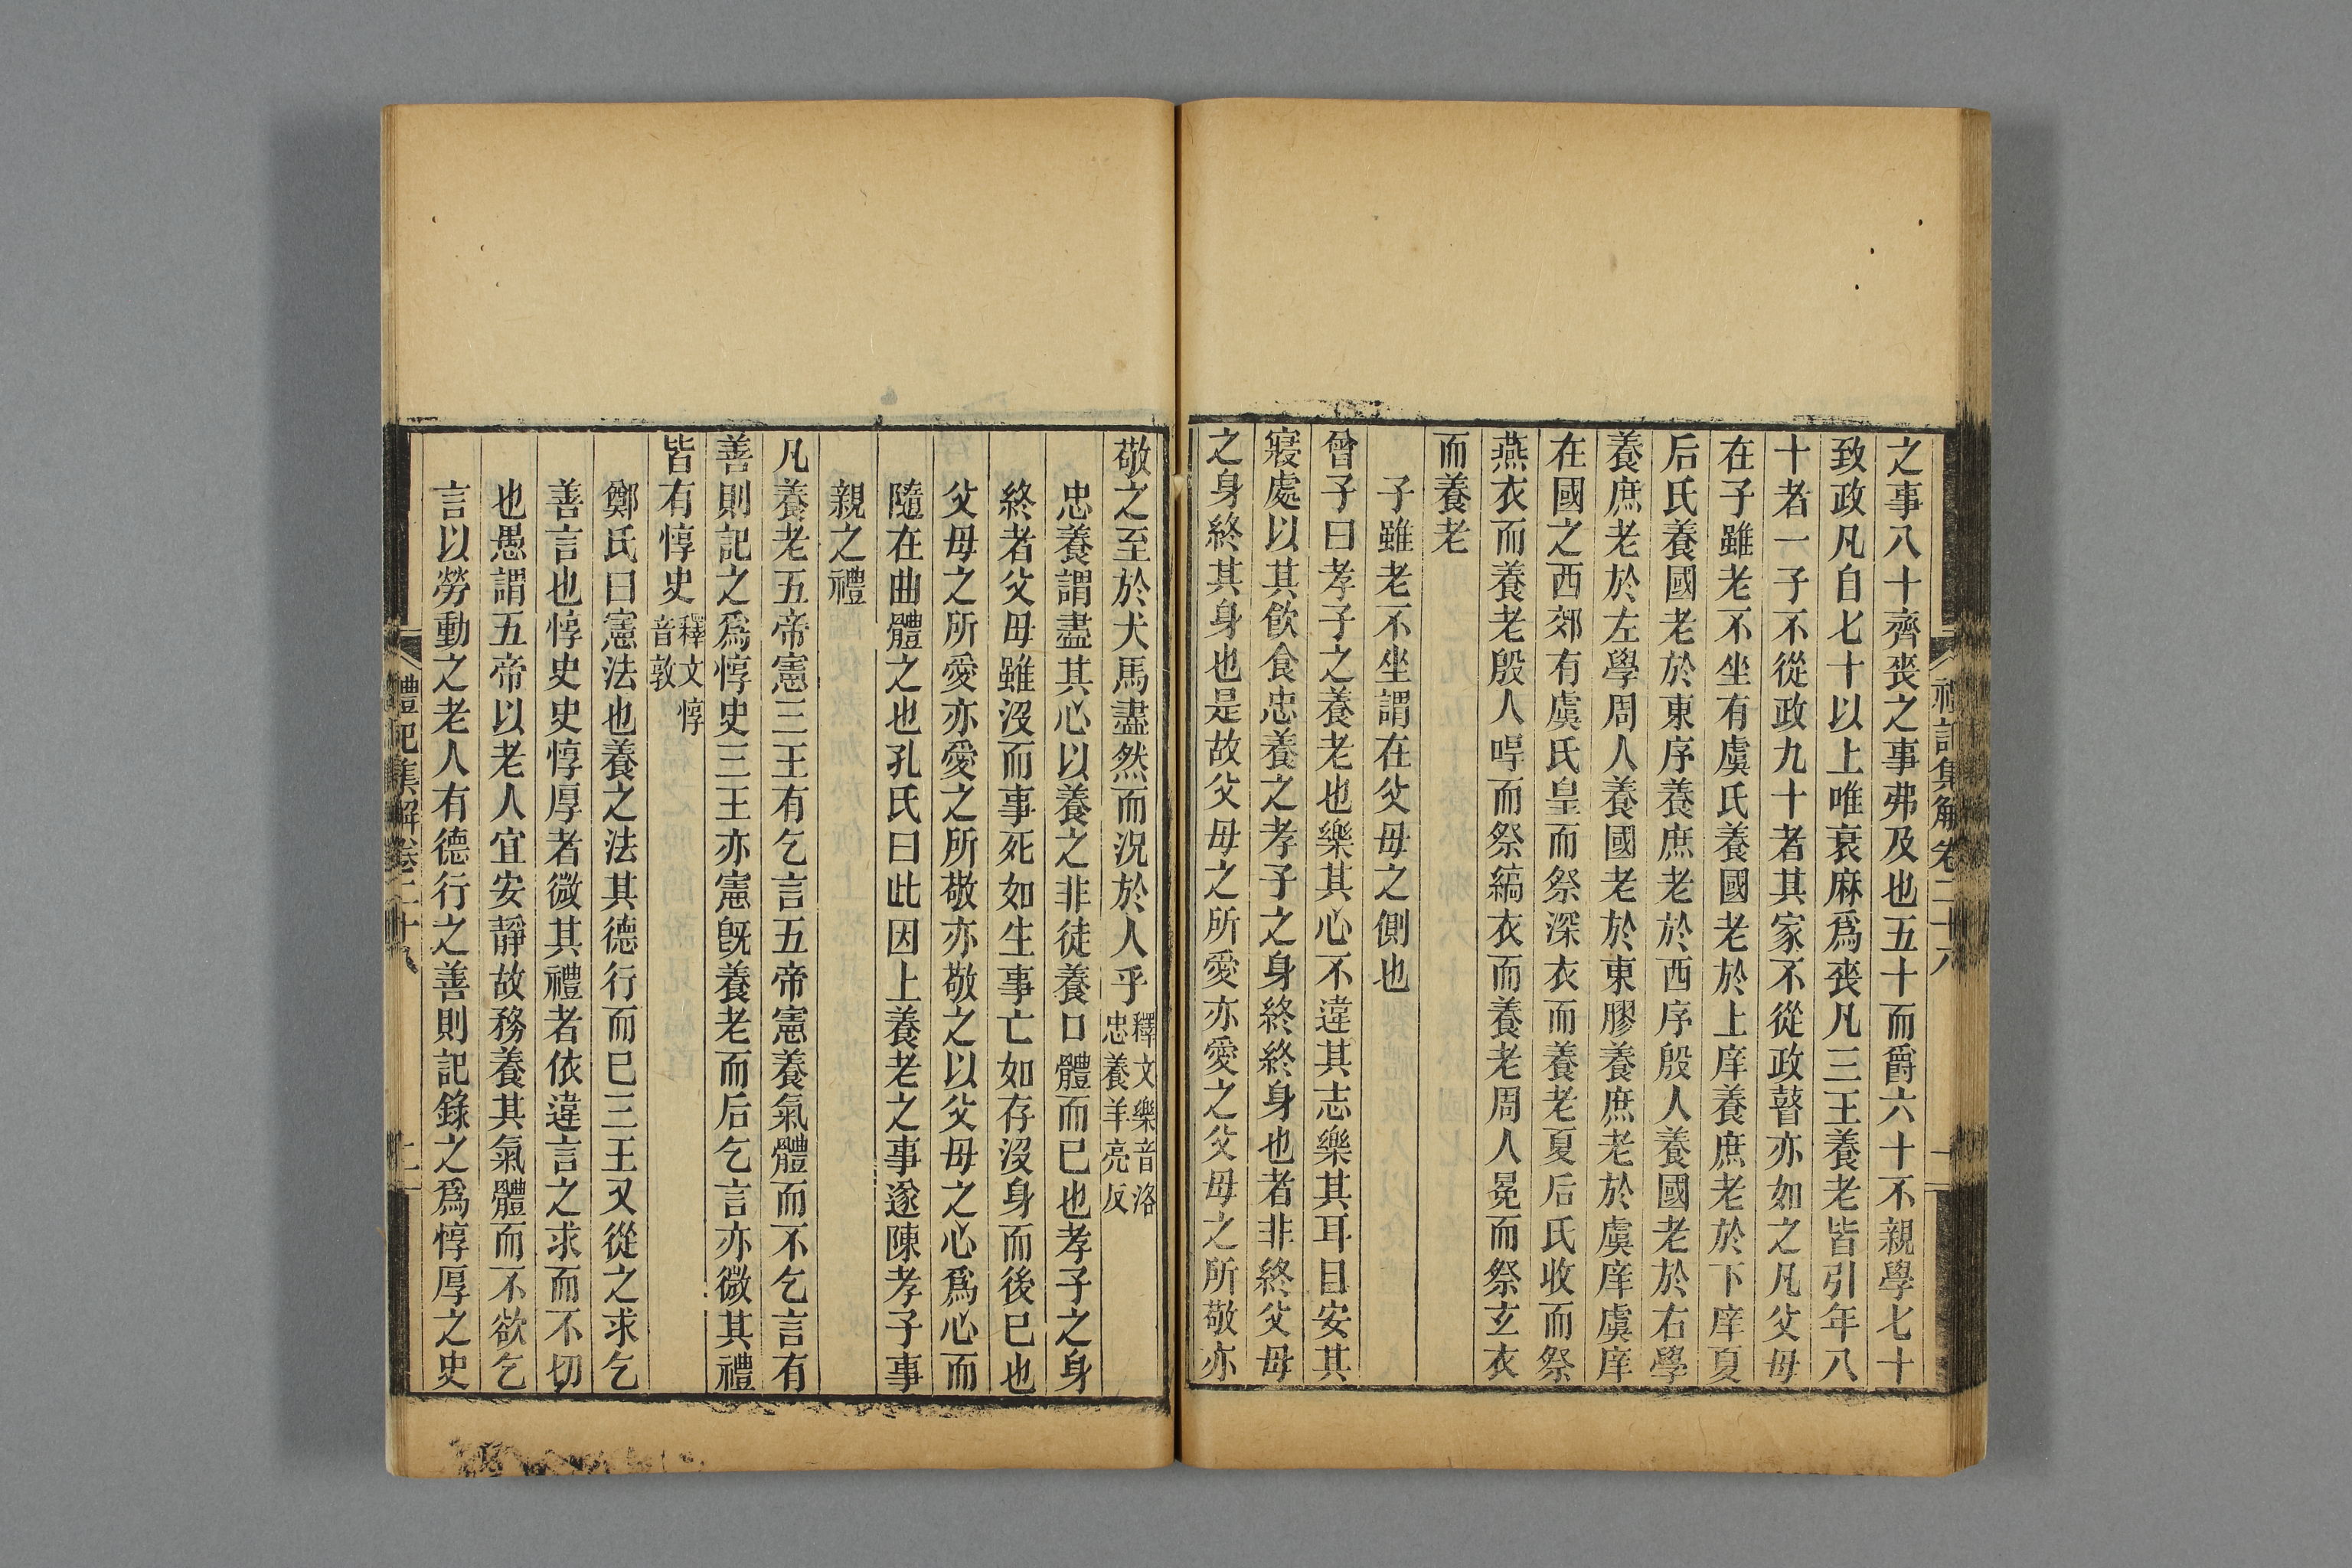 禮記集解卷二十八
之事八十齊喪之事弗及也五十而爵六十不親學七十
致政凡自七十以上唯衰麻爲喪凡三王養老皆引年八
十者一子不從政九十者其家不從政瞽亦如之凡父母
在子雖老不坐有虞氏養國老於上庠養庶老於下庠夏
后氏養國老於東序養庶老於西序殷人養國老於右學
養庶老於左學周人養國老於東膠養庶老於虞庠虞庠
在國之西郊有虞氏皇而祭深衣而養老夏后氏收而祭
燕衣而養老殷人哻而祭縞衣而養老周人冕而祭玄衣
而養老
子雖老不坐謂在父母之側也
曾子曰孝子之養老也樂其心不違其志樂其耳目安其
寢處以其飲食忠養之孝子之身終終身也者非終父母
之身終其身也是故父母之所愛亦愛之父母之所敬亦
敬之至於犬馬盡然而況於人乎釋文樂音洛
忠養羊亮反
忠養謂盡其心以養之非徒養口體而已也孝子之身
終者父母雖沒而事死如生事亡如存沒身而後已也
父母之所愛亦愛之所敬亦敬之以父母之心爲心而
隨在曲體之也孔氏曰此因上養老之事遂陳孝子事
親之禮
凡養老五帝憲三王有乞言五帝憲養氣體而不乞言有
善則記之爲惇史三王亦憲既養老而后乞言亦微其禮
皆有惇史釋文惇
音敦
鄭氏曰憲法也養之法其德行而已三王又從之求乞
善言也惇史史惇厚者微其禮者依違言之求而不切
也愚謂五帝以老人宜安靜故務養其氣體而不欲乞
言以勞動之老人有德行之善則記錄之爲惇厚之史
禮記集解卷二十八